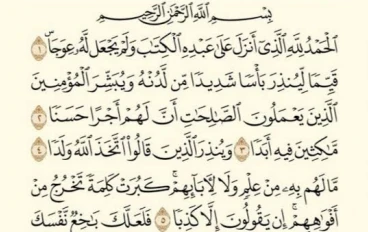 بِسْمِ اللَّهِ الرَّحْمَٰنِ الرَّحِيمِ
الْحَمْدُ لِلَّهِ الَّذِي أَنزَلَ عَلَىٰ عَبْدِهِ الْكِتَابَ وَلَمْ يَجْعَل لَّهُ عِوَجًا ۜ ١
قَيِّمًا لِّيُنذِرَ بَأْسًا شَدِيدًا مِّن لَّدُنْهُ وَيُبَشِّرَ الْمُؤْمِنِينَ
الَّذِينَ يَعْمَلُونَ الصَّالِحَاتِ أَنَّ لَهُمْ أَجْرًا حَسَنًا ٢
مَّاكِثِينَ فِيهِ أَبَدًا ٣ وَيُنذِرَ الَّذِينَ قَالُوا اتَّخَذَ اللَّهُ وَلَدًا ٤
مَّا لَهُم بِهِ مِنْ عِلْمٍ وَلَا لِآبَائِهِمْ ۚ كَبُرَتْ كَلِمَةً تَخْرُجُ مِنْ
أَفْوَاهِهِمْ ۚ إِن يَقُولُونَ إِلَّا كَذِبًا ٥ فَلَعَلَّكَ بَاخِعٌ نَّفْسَكَ